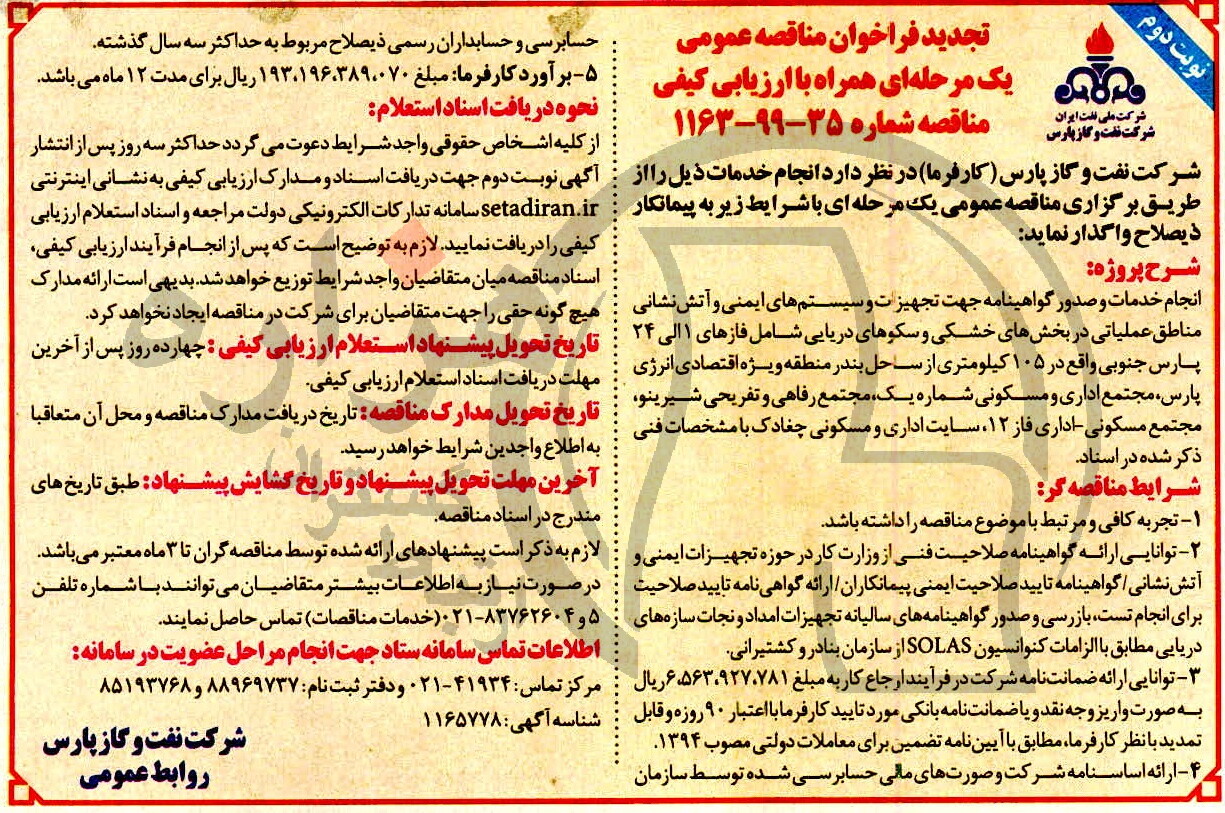 نوبت دوم
شرکت ملی نفت ایران
شرکت نفت و گاز پارس
تجدید فراخوان مناقصه عمومی
یک مرحله‌ای همراه با ارزیابی کیفی
مناقصه شماره ۳۵-۹۹-۱۱۶۳
شرکت نفت و گاز پارس (کارفرما) در نظر دارد انجام خدمات ذیل را از
طریق برگزاری مناقصه عمومی یک مرحله‌ای با شرایط زیر به پیمانکار
ذیصلاح واگذار نماید:
شرح پروژه:
انجام خدمات و صدور گواهینامه جهت تجهیزات و سیستم‌های ایمنی و آتش‌نشانی
مناطق عملیاتی در بخش‌های خشکی و سکوهای دریایی شامل فازهای ۱ الی ۲۴
پارس جنوبی واقع در ۱۰۵ کیلومتری از ساحل بندر منطقه ویژه اقتصادی انرژی
پارس، مجتمع اداری و مسکونی شماره یک، مجتمع رفاهی و تفریحی شیرینو،
مجتمع مسکونی-اداری فاز ۱۲، سایت اداری و مسکونی چغادک با مشخصات فنی
ذکر شده در اسناد.
شرایط مناقصه گر:
۱- تجربه کافی و مرتبط با موضوع مناقصه را داشته باشد.
۲- توانایی ارائه گواهینامه صلاحیت فنی از وزارت کار در حوزه تجهیزات ایمنی و
آتش‌نشانی/گواهینامه تایید صلاحیت ایمنی پیمانکاران/ارائه گواهی‌نامه تایید صلاحیت
برای انجام تست، بازرسی و صدور گواهینامه‌های سالیانه تجهیزات امداد و نجات سازه‌های
دریایی مطابق با الزامات کنوانسیون SOLAS از سازمان بنادر و کشتیرانی.
۳- توانایی ارائه ضمانت‌نامه شرکت در فرآیند ارجاع کار به مبلغ ۶،۵۶۳،۹۲۷،۷۸۱ ریال
به صورت واریز وجه نقد و یا ضمانت‌نامه بانکی مورد تایید کارفرما با اعتبار ۹۰ روزه و قابل
تمدید با نظر کارفرما، مطابق با آیین‌نامه تضمین برای معاملات دولتی مصوب ۱۳۹۴.
۴- ارائه اساسنامه شرکت و صورت‌های مالی حسابرسی شده توسط سازمان
حسابرسی و حسابداران رسمی ذیصلاح مربوط به حداکثر سه سال گذشته.
۵- برآورد کارفرما: مبلغ ۱۹۳،۱۹۶،۳۸۹،۰۷۰ ریال برای مدت ۱۲ ماه می باشد.
نحوه دریافت اسناد استعلام:
از کلیه اشخاص حقوقی واجد شرایط دعوت می گردد حداکثر سه روز پس از انتشار
آگهی نوبت دوم جهت دریافت اسناد و مدارک ارزیابی کیفی به نشانی اینترنتی
setadiran.ir سامانه تدارکات الکترونیکی دولت مراجعه و اسناد استعلام ارزیابی
کیفی را دریافت نمایید. لازم به توضیح است که پس از انجام فرآیند ارزیابی کیفی،
اسناد مناقصه میان متقاضیان واجد شرایط توزیع خواهد شد. بدیهی است ارائه مدارک
هیچ گونه حقی را جهت متقاضیان برای شرکت در مناقصه ایجاد نخواهد کرد.
تاریخ تحویل پیشنهاد استعلام ارزیابی کیفی : چهارده روز پس از آخرین
مهلت دریافت اسناد استعلام ارزیابی کیفی.
تاریخ تحویل مدارک مناقصه: تاریخ دریافت مدارک مناقصه و محل آن متعاقبا
به اطلاع واجدین شرایط خواهد رسید.
آخرین مهلت تحویل پیشنهاد و تاریخ گشایش پیشنهاد: طبق تاریخ های
مندرج در اسناد مناقصه.
لازم به ذکر است پیشنهادهای ارائه شده توسط مناقصه‌گران تا ۳ ماه معتبر می باشد.
در صورت نیاز به اطلاعات بیشتر متقاضیان می توانند با شماره تلفن
۵ و ۸۳۷۶۲۶۰۴-۰۲۱ (خدمات مناقصات) تماس حاصل نمایند.
اطلاعات تماس سامانه ستاد جهت انجام مراحل عضویت در سامانه:
مرکز تماس: ۴۱۹۳۴-۰۲۱ و دفتر ثبت نام: ۸۸۹۶۹۷۳۷ و ۸۵۱۹۳۷۶۸
شناسه آگهی: ۱۱۶۵۷۷۸
شرکت نفت و گاز پارس
روابط عمومی